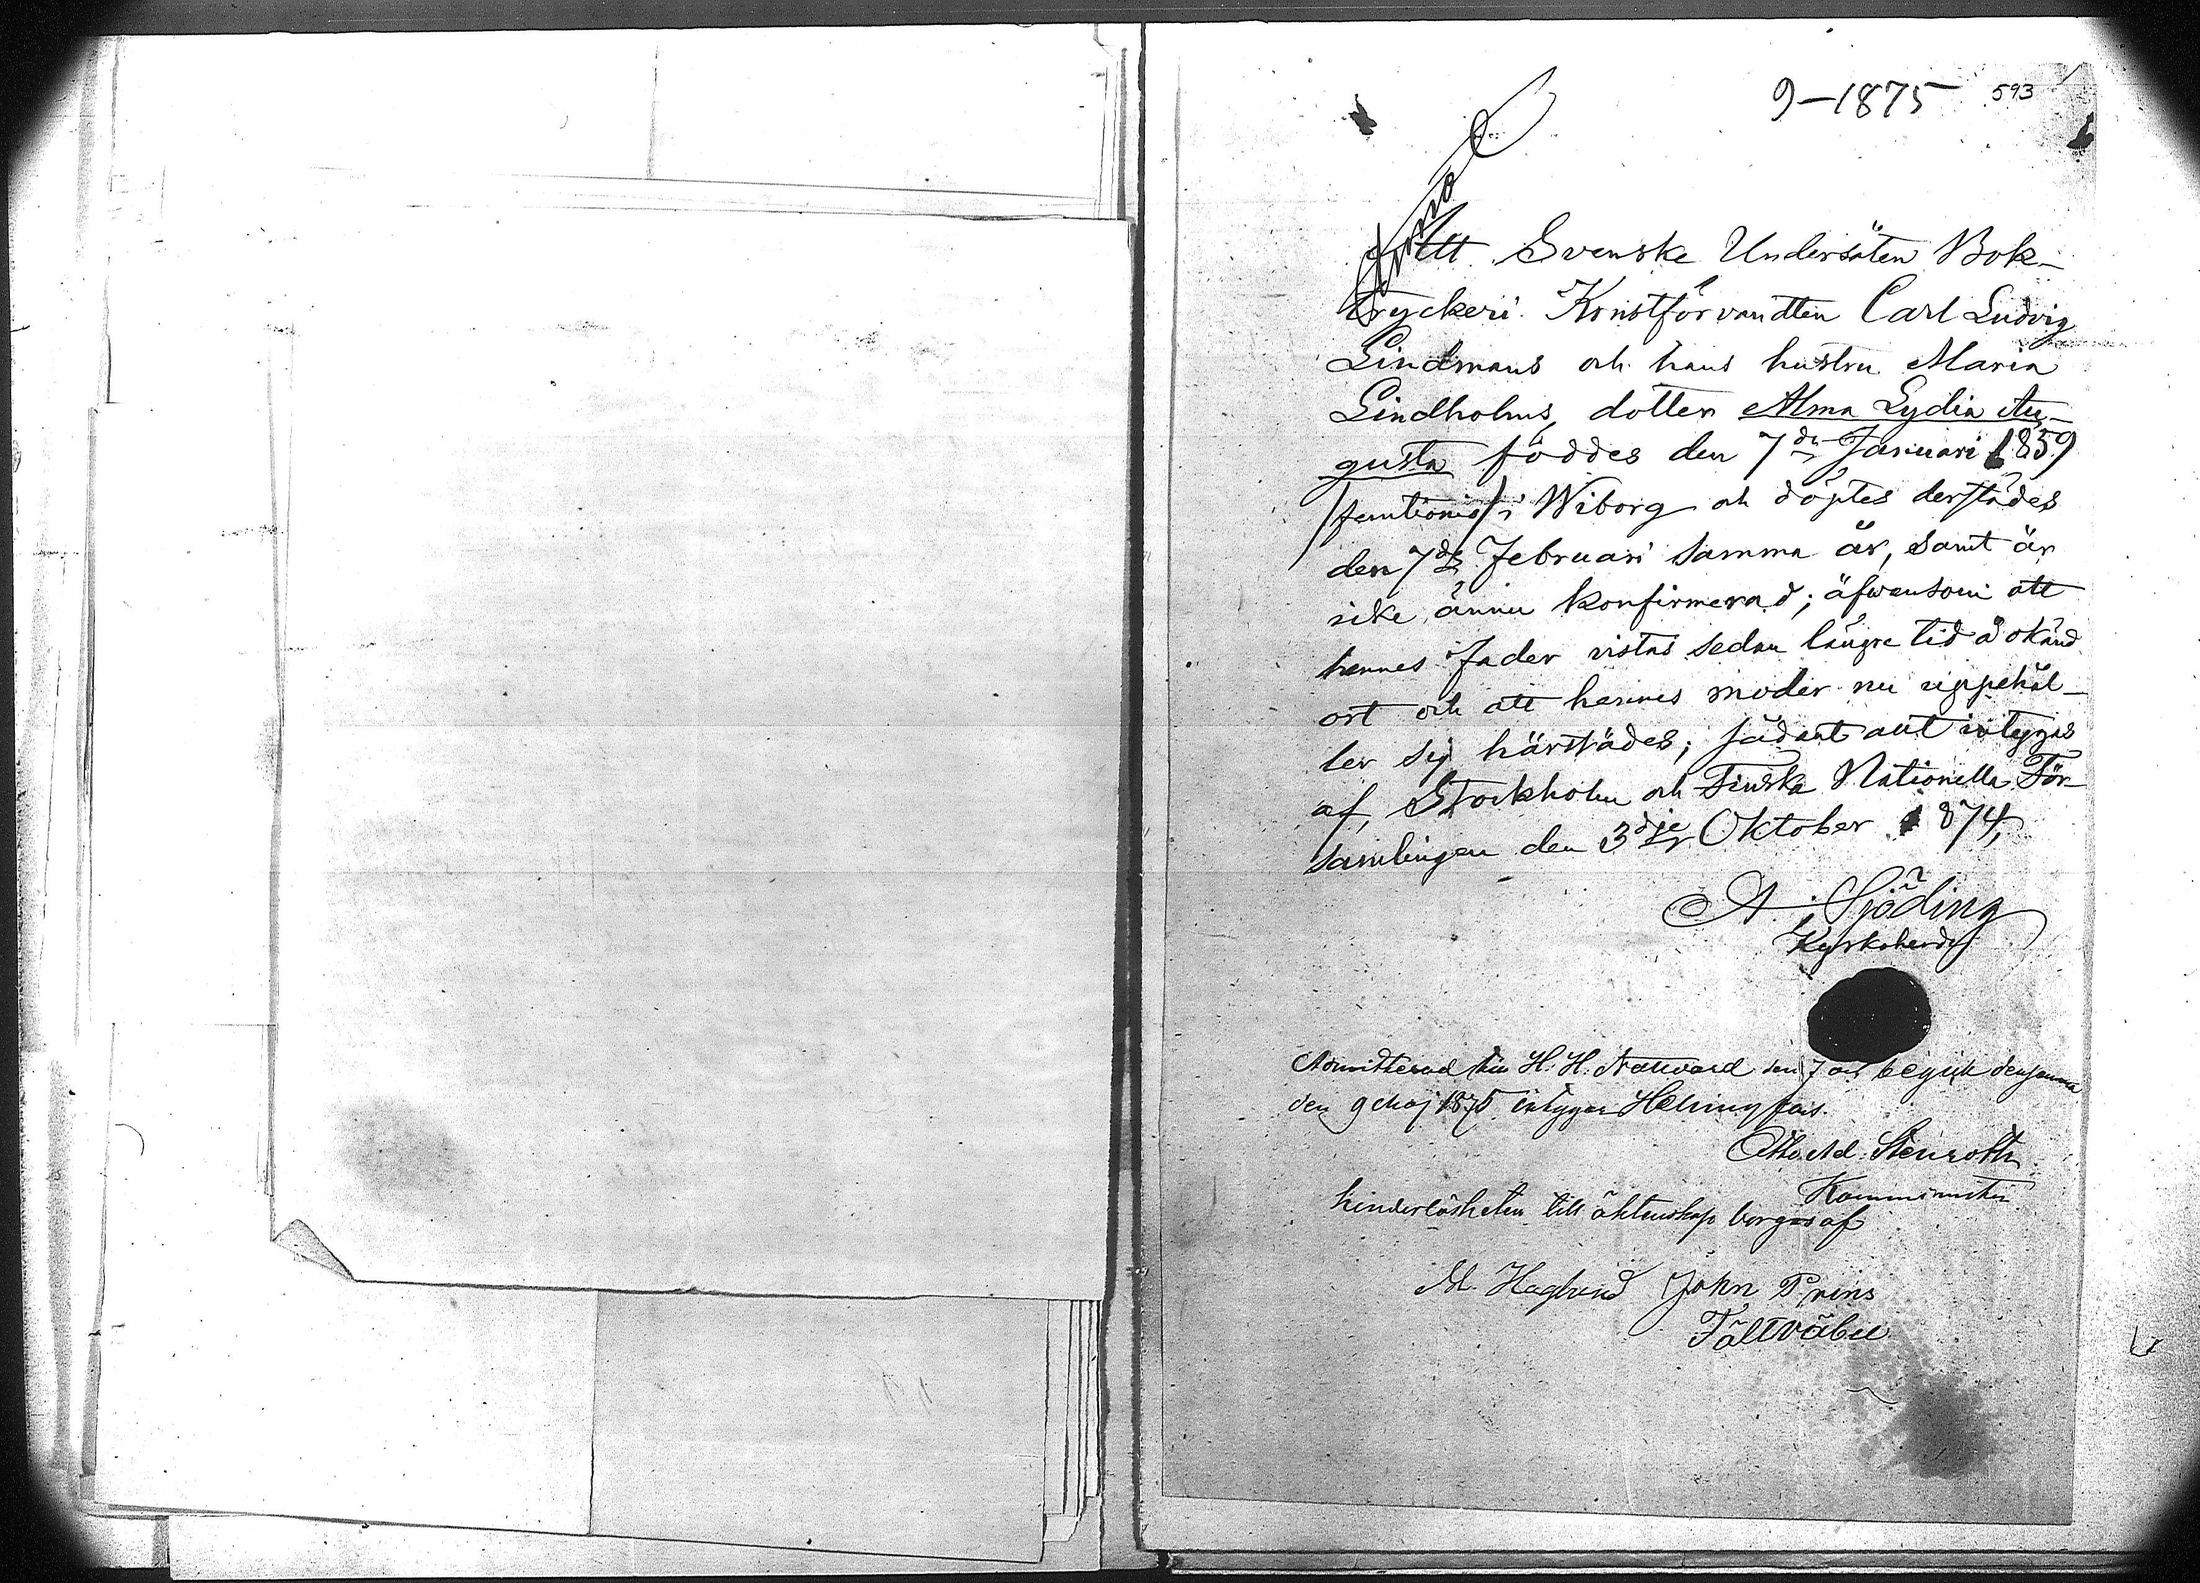 9-1875 593
Att Svenske Undersåten Bok-
tryckeri Konstförvandten Carl Ludvig
Lindmans och hans hustru Maria
Lindholms, dotter Alma Lydia Au-
gusta föddes den 7de Januari 1859
/femtionio/ i Wiborg och döptes derstädes
den 7de Februari samma år, samt är
icke ännu konfirmerad; äfwensom att
hennes Fader vistas sedan längre tid å okänd
ort och att hennes moder nu uppehål-
ler sig härstädes; sådant allt intygas
af, Stockholm och Finska Nationella För-
samlingen den 3dje Oktober 1874,
A. Sjöding
Kyrkoherde
Admitterad till H. H. Nattvard den 7 och begick densamma
den 9 Maj 1875 intygar Helsingfors.
Otto Ad. Stenroth
Kamminister
hinderlösheten till äktenskap borgas af
M. Haglund John Prins
Fältväbel